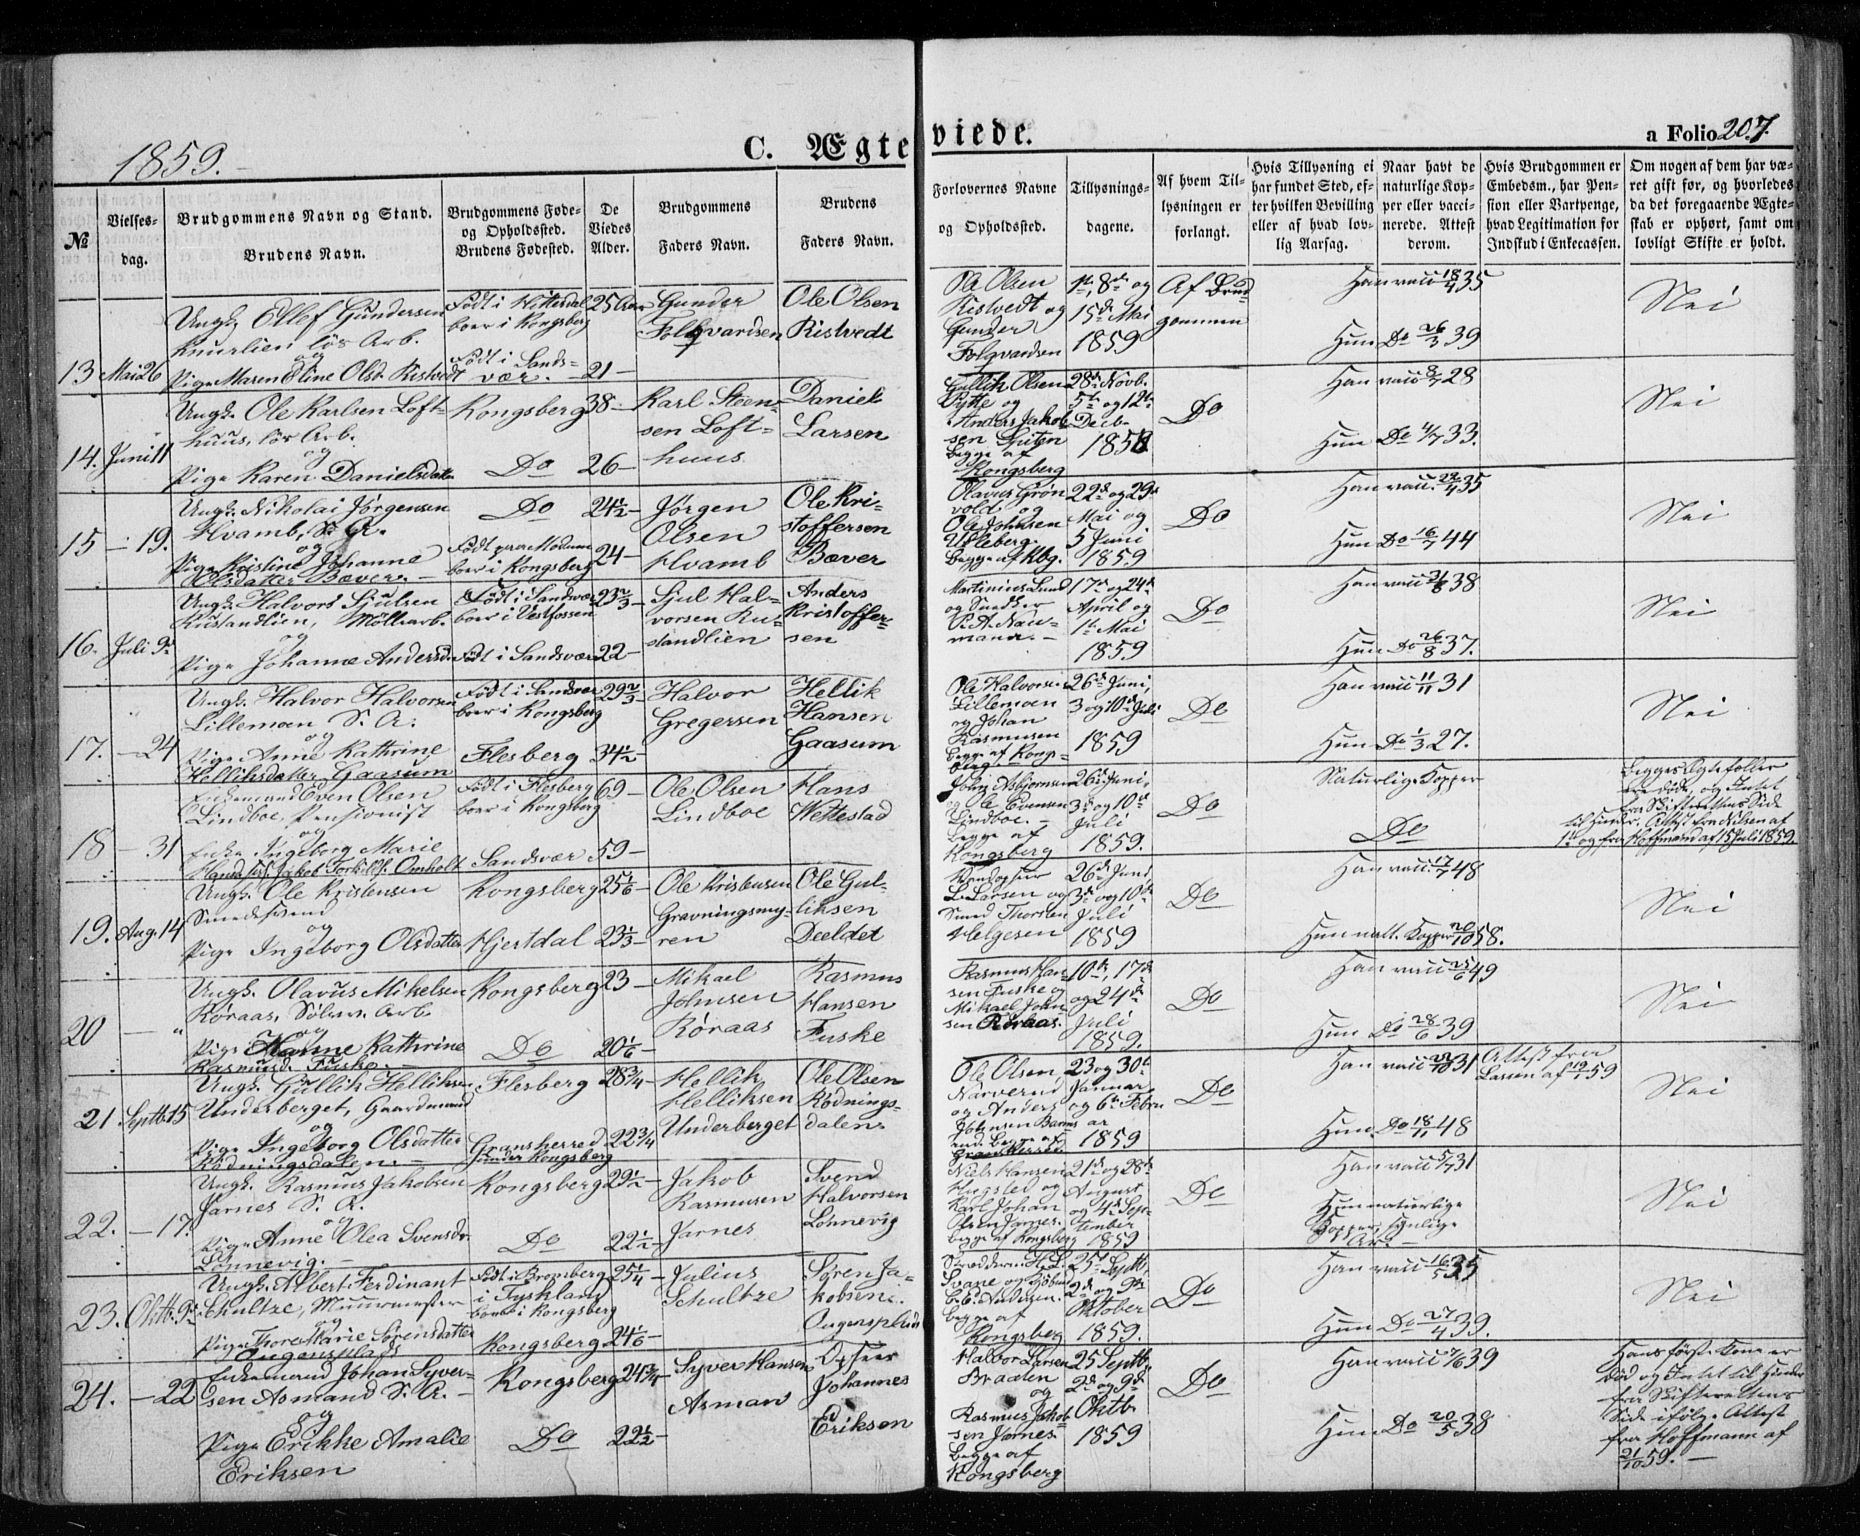 1859.
C. Ægteviede.
a Folio 207.
№
Vielses-
dag.
Brudgommens Navn og Stand.
Brudens Navn.
Brudgommens Føde-
og Opholdssted.
Brudens Fødested.
De
Viedes
Alder.
Brudgommens
Faders Navn.
Brudens
Faders Navn.
Forlovernes Navne
og Opholdssted.
Tillysnings-
dagene.
Af hvem Til-
lysningen er
forlangt.
Hvis Tillysning ei
har fundet Sted, ef-
ter hvilken Bevilling
eller af hvad lov-
lig Aarsag.
Naar havt de
naturlige Kop-
per eller vacci-
nerede. Attest
derom.
Hvis Brudgommen er
Embedsm., har Pen-
sion eller Vartpenge,
hvad Legitimation for
Indskud i Enkecassen.
Om nogen af dem har væ-
ret gift før, og hvorledes
da det foregaaende Ægte-
skab er ophørt, samt om
lovligt Skifte er holdt.
13 Mai 26
Ungk. Ellef Gundersen
Knurlien løs Arb.
og
Pige Maren Eline Olsd. Ristvedt
Født i Hittesdal
boer i Kongsberg
Født i Sands-
vær.
25 Aar
21
Gunder
Folqvardsen
Ole Olsen
Ristvedt
Ole Olsen
Ristvedt og
Gunder
Folqvardsen
1te, 8de og
15de Mai
1859
Af Brud-
gommen
Han vacc 18/4 35
Hun Do 26/3 39
Nei
14. Juni 11
Ungk. Ole Karlsen Loft-
huus, løs Arb.
og
Pige Karen Danielsdatter
Kongsberg
Do
38
26
Karl Steen-
sen Loft-
huus
Daniel
Larsen
Gullik Olsen
Pytte og
Anders Jakob-
sen Spiten
begge af
Kongsberg
28de Novb.
5te og 12te
Decb.
1858
Do
Han vacc 8/7 28
Hun Do 4/7 33.
Nei
15 – 19.
Ungk. Nikolai Jørgensen
Hvamb, S. A.
og
Pige Kristine Johanne
Olsdatter Bæver.
Do
Født paa Modum
boer i Kongsberg
24½
24
Jørgen
Olsen
Hvamb
Ole Kri-
stoffersen
Bæver
Olavus Grøn-
vold og
Ole Johnsen
Ulleberg.
begge af Kbg.
22de og 29de
Mai og
5 Juni
1859.
Do
Han vacc. 22/4 35
Hun Do 16/7 44
Nei
16. Juli 9.
Ungk. Halvors Sjulsen
Rustandlien, Møllearb.
og
Pige Johanne Andersd.
Født i Sandsvær
boer i Vestfossen
Født i Sandsvær
23⅔
22
Sjul Hal-
vorsen Ru-
standlien
Anders
Kristoffer-
sen
Martinius Lund
og Snedker
P. A. Nau-
mann.
17de og 24de
April og
1te Mai
1859
Do
Han vacc 31/8 38
Hun Do 26/8 37.
Nei
17. – 24
Ungk. Halvor Halvorsen
Lillemoen S. A.
og
Pige Anne Kathrine
Helliksdatter Gaasum
Født i Sandsvær
boer i Kongsberg
Flesberg
29⅔
34½
Halvor
Gregersen
Hellik
Hansen
Gaasum
Ole Halvorsen
Lillemoen
og Johan
Rasmusen
begge af Kong-
berg
26de Juni,
3 og 10de Juli
1859
Do
Han vacc 11/11 31
Hun Do 1/3 27.
Nei
18 – 31
Enkemand Even Olsen
Lindboe, Pensionist
og
Enke Ingeborg Marie
Hansd.
Født i Flesberg
boer i Kongsberg
Sandsvær
69
59
Ole Olsen
Lindboe
Hans
Wettestad
John Asbjørnsen
og Ole Evensen
Lindboe.
begge af
Kongsberg
26de Juni,
3de og 10de
Juli
1859.
Do
Naturlige Kopper
Do
Begges Ægtefolder
ere døde, og Intet
fra Skifterettens Side
til Hinder. Attest fra Nilsen af
1. og fra Hoffmand af 15 Juli 1859.
19. Aug. 14
Ungk. Ole Kristensen
Smedsvend
og
Pige Ingeborg Olsdatter
Kongsberg
Hjertdal
25⅙
23⅓
Ole Kristensen
Gravningsmy-
ren
Ole Gul-
liksen
Deeldet
L. Larsen og
Smed Thorsten
Helgesen
26de Juni,
3de og 10de
Juli
1859
Do
Han vacc. 17/7 48
Hun natl. Kopper 20/10 58.
Nei
20 – "
Ungk. Olavus Mikelsen
Røraas, Sølvv. Arb.
og
Pige Hanne Kathrine
Rasmusd. Fuske.
Kongsberg
Do
23
20⅙
Mikael
Johnsen
Røraas
Rasmus
Hansen
Fuske
Rasmus Han-
sen Fuske og
Mikael John-
sen Røraas.
10de, 17de
og 24de
Juli
1859.
Do
Han vacc 25/6 49
Hun Do 28/6 39
Nei
21 Septb. 15
Ungk. Gullik Helliksen
Underberget, Gaardmand
og
Pige Ingeborg Olsdatter
Rødningsdalen.
Flesberg
Gransherred
under Kongsberg
28¾
22¾
Hellik
Helliksen
Underberget
Ole Olsen
Rødnings-
dalen
Ole Olsen
Nærverud
og Anders
Johnsen
begge af
Gransherred
23 og 30te
Januar
og 6te Febru
ar
1859
Do
Han vacc 31
Hun Do 18/11 48
Attest fra
Lassen af 19/1 59
Nei
22. – 17.
Ungk. Rasmus Jakobsen
Jarnes S. A.
og
Pige Anne Olea Svensdr.
Lønnevig.
Kongsberg
Do
29½
22½
Jakob
Rasmusen
Jarnes
Svend
Halvorsen
Lønnevig
Niels Hansen
Hugsled og
Karl Johan
Olsen Jarnes.
begge af Kongsberg
21de og 28de
August
og 4de Sep-
tember
1859
Do
Han vacc 5/7 31
Hun naturlige
Kopper, synlige
Ar.
Nei
23. Oktb. 9.
Ungk. Albert Ferdinant
Schultze, Muurmester
og
Pige Thore Marie Sørensdatter
Engensplads
Født i Bromberg
i Tyskland
boer i Kongsberg
Kongsberg
25¼
24⅙
Julius
Schultze
Søren Ja-
kobsen
Engensplads
Skrædderm. H. L.
Svane og Kjøbm.
C. C. Andersen.
begge af
Kongsberg
25de Septb.
2de og 9de
Oktober
1859.
Do
Han vacc 16/5 35
Hun Do 27/4 39.
Nei
24. – 22
Enkemand Johan Syver-
sen Asmand S. A.
og
Pige Erikke Amalie
Eriksen
Kongsberg
Do
24¾
22½
Syver Hansen
Asman
Johannes
Eriksen
Halvor Larsen
Braaten
og
Rasmus Jakob-
sen Jarnes
begge af
Kongsberg
25 Septb.
2de og 9de
Oktb.
1859
Do
Han vacc 7/6 39
Hun Do 20/5 38
Hans første Kone er
død og Intet til Hinder
fra Skifterettens
Side ifølge Attest
fra Hoffmann af
21/10 59.